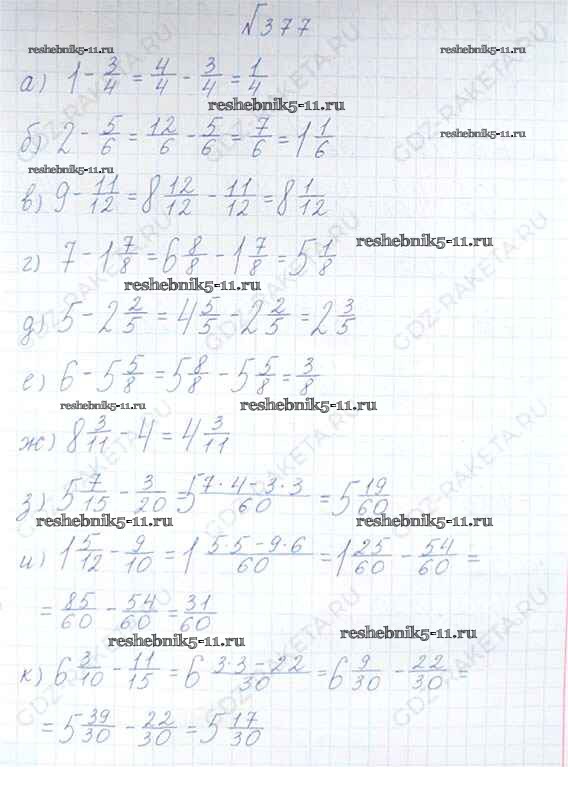 №377
reshebnik5-11.ru reshebnik5-11.ru
а) 1 - 3/4 = 4/4 - 3/4 = 1/4
reshebnik5-11.ru
б) 2 - 5/6 = 12/6 - 5/6 = 7/6 = 1 1/6
reshebnik5-11.ru
reshebnik5-11.ru
в) 9 - 11/12 = 8 12/12 - 11/12 = 8 1/12
reshebnik5-11.ru
г) 7 - 1 7/8 = 6 8/8 - 1 7/8 = 5 1/8
reshebnik5-11.ru
д) 5 - 2 2/5 = 4 5/5 - 2 2/5 = 2 3/5
е) 6 - 5 5/8 = 5 8/8 - 5 5/8 = 3/8
reshebnik5-11.ru reshebnik5-11.ru
ж) 8 3/11 - 4 = 4 3/11
з) 5 7/15 - 3/20 = 5 (7·4-3·3)/60 = 5 19/60
reshebnik5-11.ru reshebnik5-11.ru
и) 1 5/12 - 9/10 = 1 (5·5-9·6)/60 = 1 25/60 - 54/60 =
= 85/60 - 54/60 = 31/60
reshebnik5-11.ru reshebnik5-11.ru
к) 6 3/10 - 11/15 = 6 (3·3-22)/30 = 6 9/30 - 22/30 =
= 5 39/30 - 22/30 = 5 17/30
GDZ-RAKETA.RU